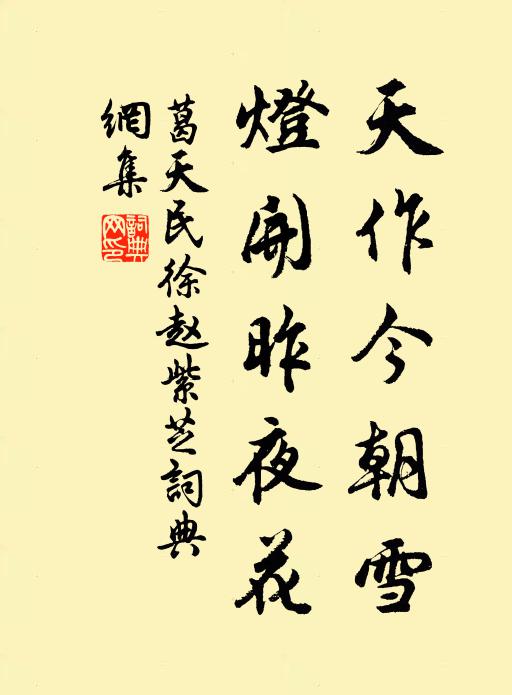 天作今朝雪
燈開昨夜花
葛天民徐赵紫芝詞典
網集
詞典
网印